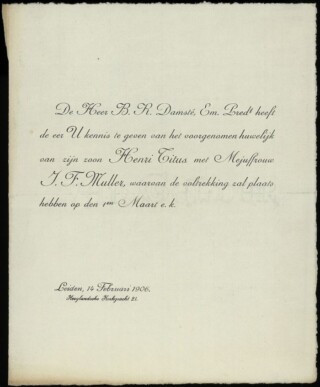 De Heer B. K. Damsté, Em. Predt heeft
de eer U kennis te geven van het voorgenomen huwelijk
van zijn zoon Henri Titus met Mejuffrouw
J. F. Muller, waarvan de voltrekking zal plaats
hebben op den 1sten Maart e. k.
Leiden, 14 Februari 1906.
Hooglandsche Kerkgracht 21.